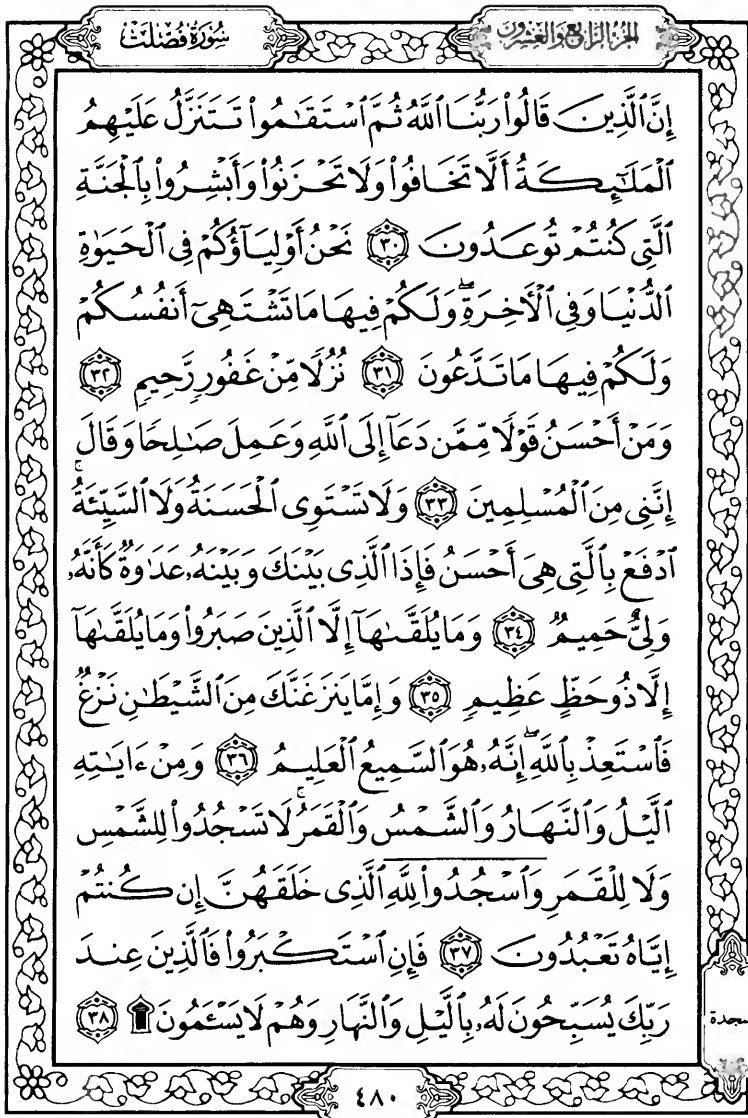 الجزء الرابع والعشرون
سُورَةُ فُصِّلَتْ
إِنَّ ٱلَّذِينَ قَالُوا۟ رَبُّنَا ٱللَّهُ ثُمَّ ٱسْتَقَـٰمُوا۟ تَتَنَزَّلُ عَلَيْهِمُ
ٱلْمَلَـٰٓئِكَةُ أَلَّا تَخَافُوا۟ وَلَا تَحْزَنُوا۟ وَأَبْشِرُوا۟ بِٱلْجَنَّةِ
ٱلَّتِى كُنتُمْ تُوعَدُونَ ﴿٣٠﴾ نَحْنُ أَوْلِيَآؤُكُمْ فِى ٱلْحَيَوٰةِ
ٱلدُّنْيَا وَفِى ٱلْـَٔاخِرَةِ ۖ وَلَكُمْ فِيهَا مَا تَشْتَهِىٓ أَنفُسُكُمْ
وَلَكُمْ فِيهَا مَا تَدَّعُونَ ﴿٣١﴾ نُزُلًا مِّنْ غَفُورٍ رَّحِيمٍ ﴿٣٢﴾
وَمَنْ أَحْسَنُ قَوْلًا مِّمَّن دَعَآ إِلَى ٱللَّهِ وَعَمِلَ صَـٰلِحًا وَقَالَ
إِنَّنِى مِنَ ٱلْمُسْلِمِينَ ﴿٣٣﴾ وَلَا تَسْتَوِى ٱلْحَسَنَةُ وَلَا ٱلسَّيِّئَةُ ۚ
ٱدْفَعْ بِٱلَّتِى هِىَ أَحْسَنُ فَإِذَا ٱلَّذِى بَيْنَكَ وَبَيْنَهُۥ عَدَٰوَةٌ كَأَنَّهُۥ
وَلِىٌّ حَمِيمٌ ﴿٣٤﴾ وَمَا يُلَقَّىٰهَآ إِلَّا ٱلَّذِينَ صَبَرُوا۟ وَمَا يُلَقَّىٰهَآ
إِلَّا ذُو حَظٍّ عَظِيمٍ ﴿٣٥﴾ وَإِمَّا يَنزَغَنَّكَ مِنَ ٱلشَّيْطَـٰنِ نَزْغٌ
فَٱسْتَعِذْ بِٱللَّهِ ۖ إِنَّهُۥ هُوَ ٱلسَّمِيعُ ٱلْعَلِيمُ ﴿٣٦﴾ وَمِنْ ءَايَـٰتِهِ
ٱلَّيْلُ وَٱلنَّهَارُ وَٱلشَّمْسُ وَٱلْقَمَرُ ۚ لَا تَسْجُدُوا۟ لِلشَّمْسِ
وَلَا لِلْقَمَرِ وَٱسْجُدُوا۟ لِلَّهِ ٱلَّذِى خَلَقَهُنَّ إِن كُنتُمْ
إِيَّاهُ تَعْبُدُونَ ﴿٣٧﴾ فَإِنِ ٱسْتَكْبَرُوا۟ فَٱلَّذِينَ عِندَ
رَبِّكَ يُسَبِّحُونَ لَهُۥ بِٱلَّيْلِ وَٱلنَّهَارِ وَهُمْ لَا يَسْـَٔمُونَ ۩ ﴿٣٨﴾
سجدة
٤٨٠